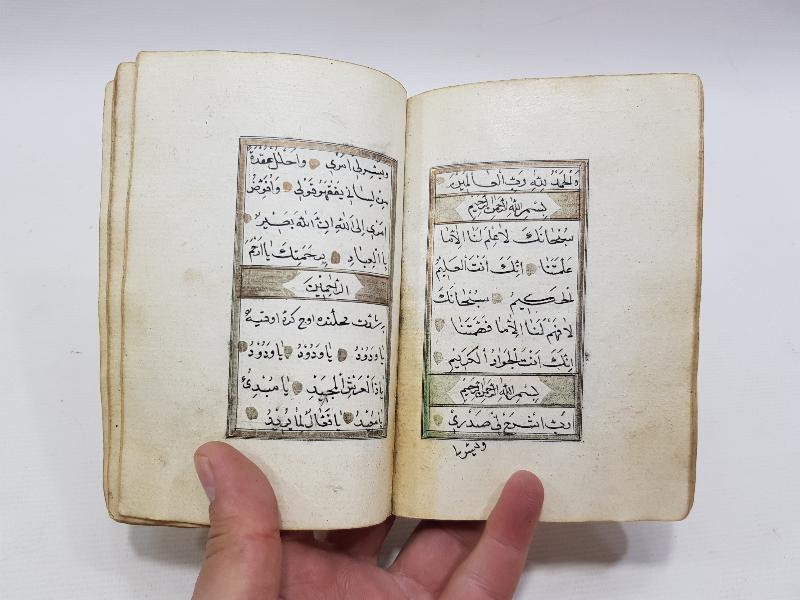 والحمد لله رب العالمين
بسم الله الرحمن الرحيم
سبحانك لا علم لنا الا ما
علمتنا انك انت العليم
الحكيم سبحانك
لا فهم لنا الا ما فهمتنا
انك انت الجواد الكريم
بسم الله الرحمن الرحيم
رب اشرح لي صدري
ويسر لي
ويسر لي امري واحلل عقدة
من لساني يفقهوا قولي وافوض
امري الى الله ان الله بصير
بالعباد برحمتك يا ارحم
الراحمين
اوچ كره اوقيه
يا ودود يا ودود يا ودود
يا ذا العرش المجيد يا مبدئ
يا معيد يا فعال لما يريد